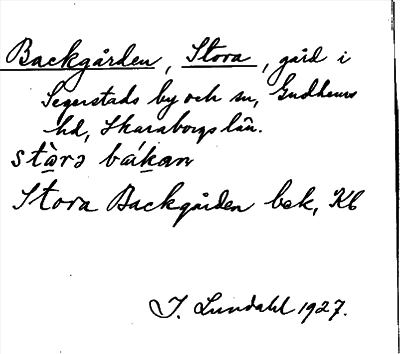 Backgården, Stora, gård i
Segerstads by och sn, Gudhems
hd, Skaraborgs län.
stàra bákan
Stora Backgården bek, Kb
I. Lundahl 1927.